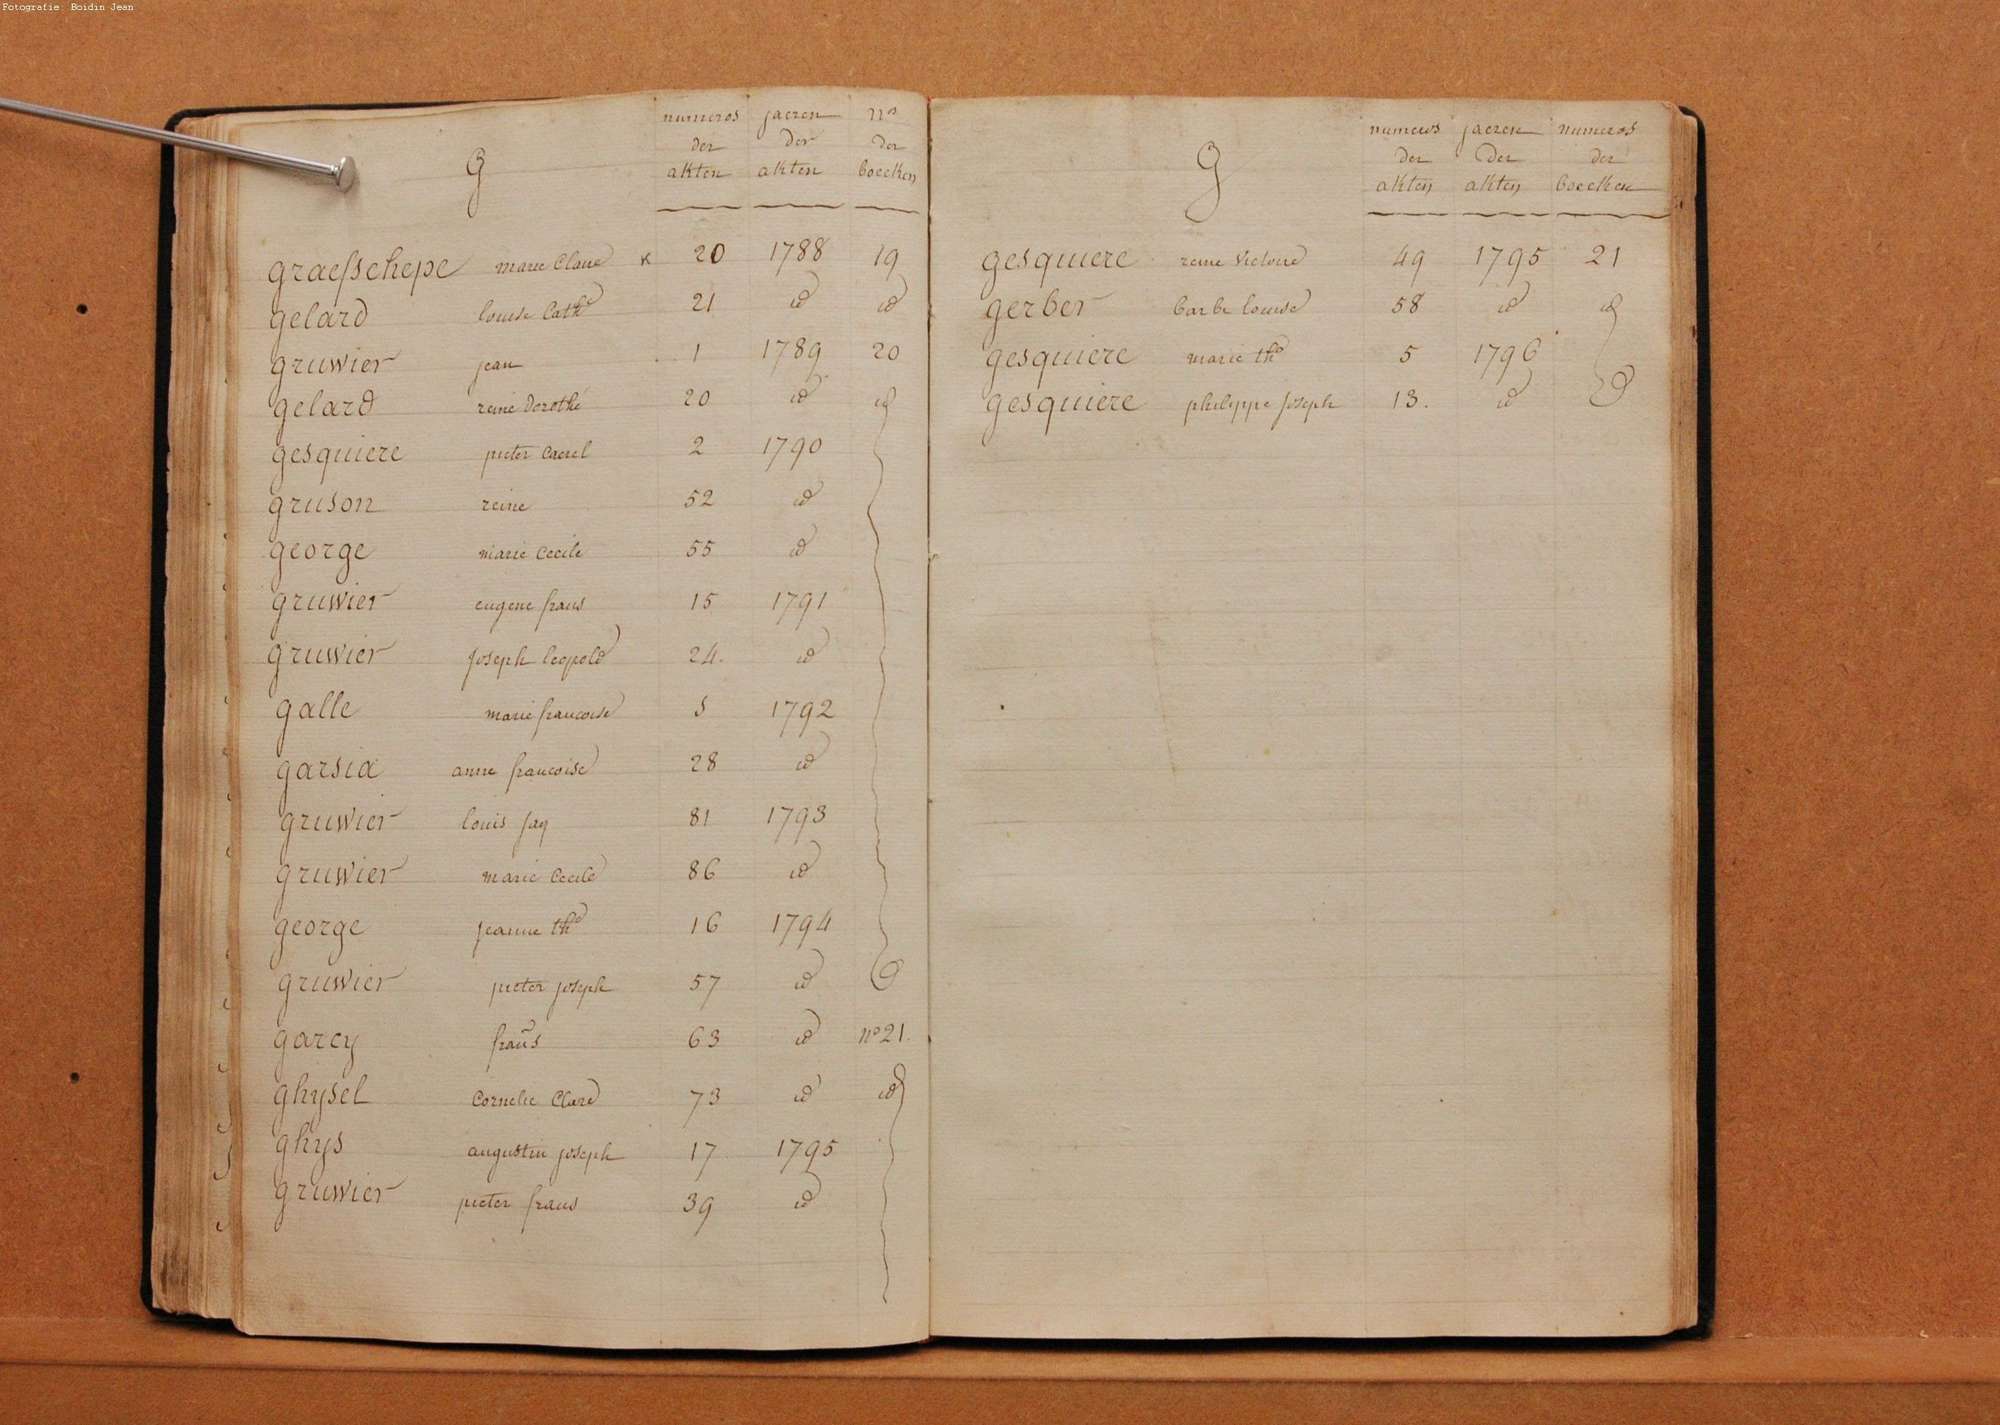 Fotografie: Boidin Jean
G
numeros der akten
jaeren der akten
nos der boecken
graefschepe marie Claire K 20 1788 19
gelard louise Cathe 21 id id
gruwier jean 1 1789 20
gelard reine dorothé 20 id id
gesquiere pieter Carel 2 1790
gruson reine 52 id
george marie Cecile 55 id
gruwier eugene frans 15 1791
gruwier joseph leopold 24. id
galle marie francoise 5 1792
garsia anne francoise 28 id
gruwier louis jaq 81 1793
gruwier marie Cecile 86 id
george jeanne the 16 1794
gruwier pieter joseph 57 id
garcy frans 63 id no 21.
ghysel Cornelie Clare 73 id id
ghys augustin joseph 17 1795
gruwier pieter frans 39 id
G
numeros der akten
jaeren der akten
numeros der boecken
gesquiere reine victoire 49 1795 21
gerber barbe louise 58 id id
gesquiere marie the 5 1796
gesquiere philippe joseph 13. id